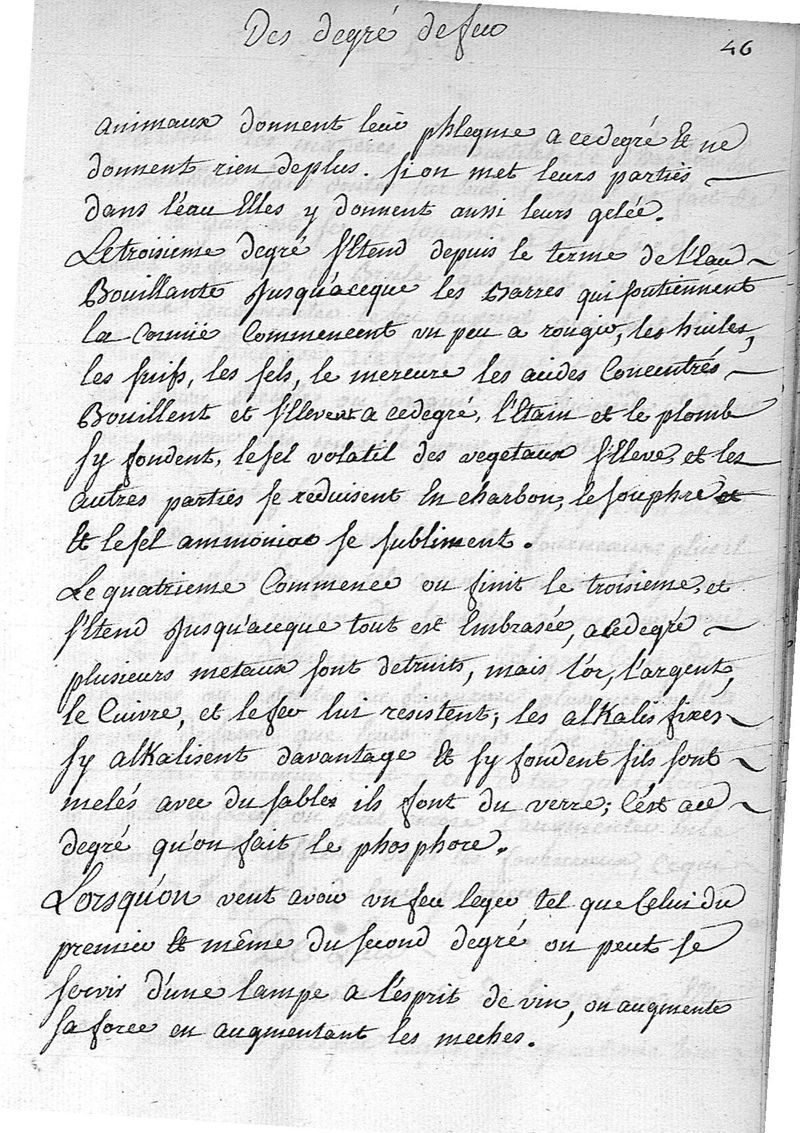 Des degré de feu
46
animaux donnent leur phlegme a cedegré et ne
donnent rien deplus. si on met leurs parties
dans l'eau Elles y donnent aussi leurs gelée.
Le troisieme degré s'Etend depuis le terme de l'Eau
Bouillante Jusqu'aceque les Barres qui soutiennent
la Cornüe Commencent un peu a rougir, les huiles,
les suifs, les sels, le mercure les acides Concentrés
Bouillent et s'Elevent a cedegré, l'Etain et le plomb
sy fondent, le sel volatil des vegetaux s'Eleve, et les
autres parties se reduisent En charbon, le souphre
et le sel ammoniac se subliment.
Le quatrieme Commence ou finit le troisieme, et
s'Etend Jusqu'aceque tout est Embrasée, a cedegré
plusieurs metaux sont detruits, mais l'or, l'argent,
le Cuivre, et le fer lui resistent; les alkalis fixes
sy alkalisent davantage et sy fondent sils sont
melés avec du sable ils font du verre; C'est ace
degré qu'on fait le phosphore.
Lorsqu'on veut avoir un feu leger tel que Celui du
premier et même du second degré on peut se
servir d'une lampe a l'esprit de vin, on augmente
sa force en augmentant les meches.